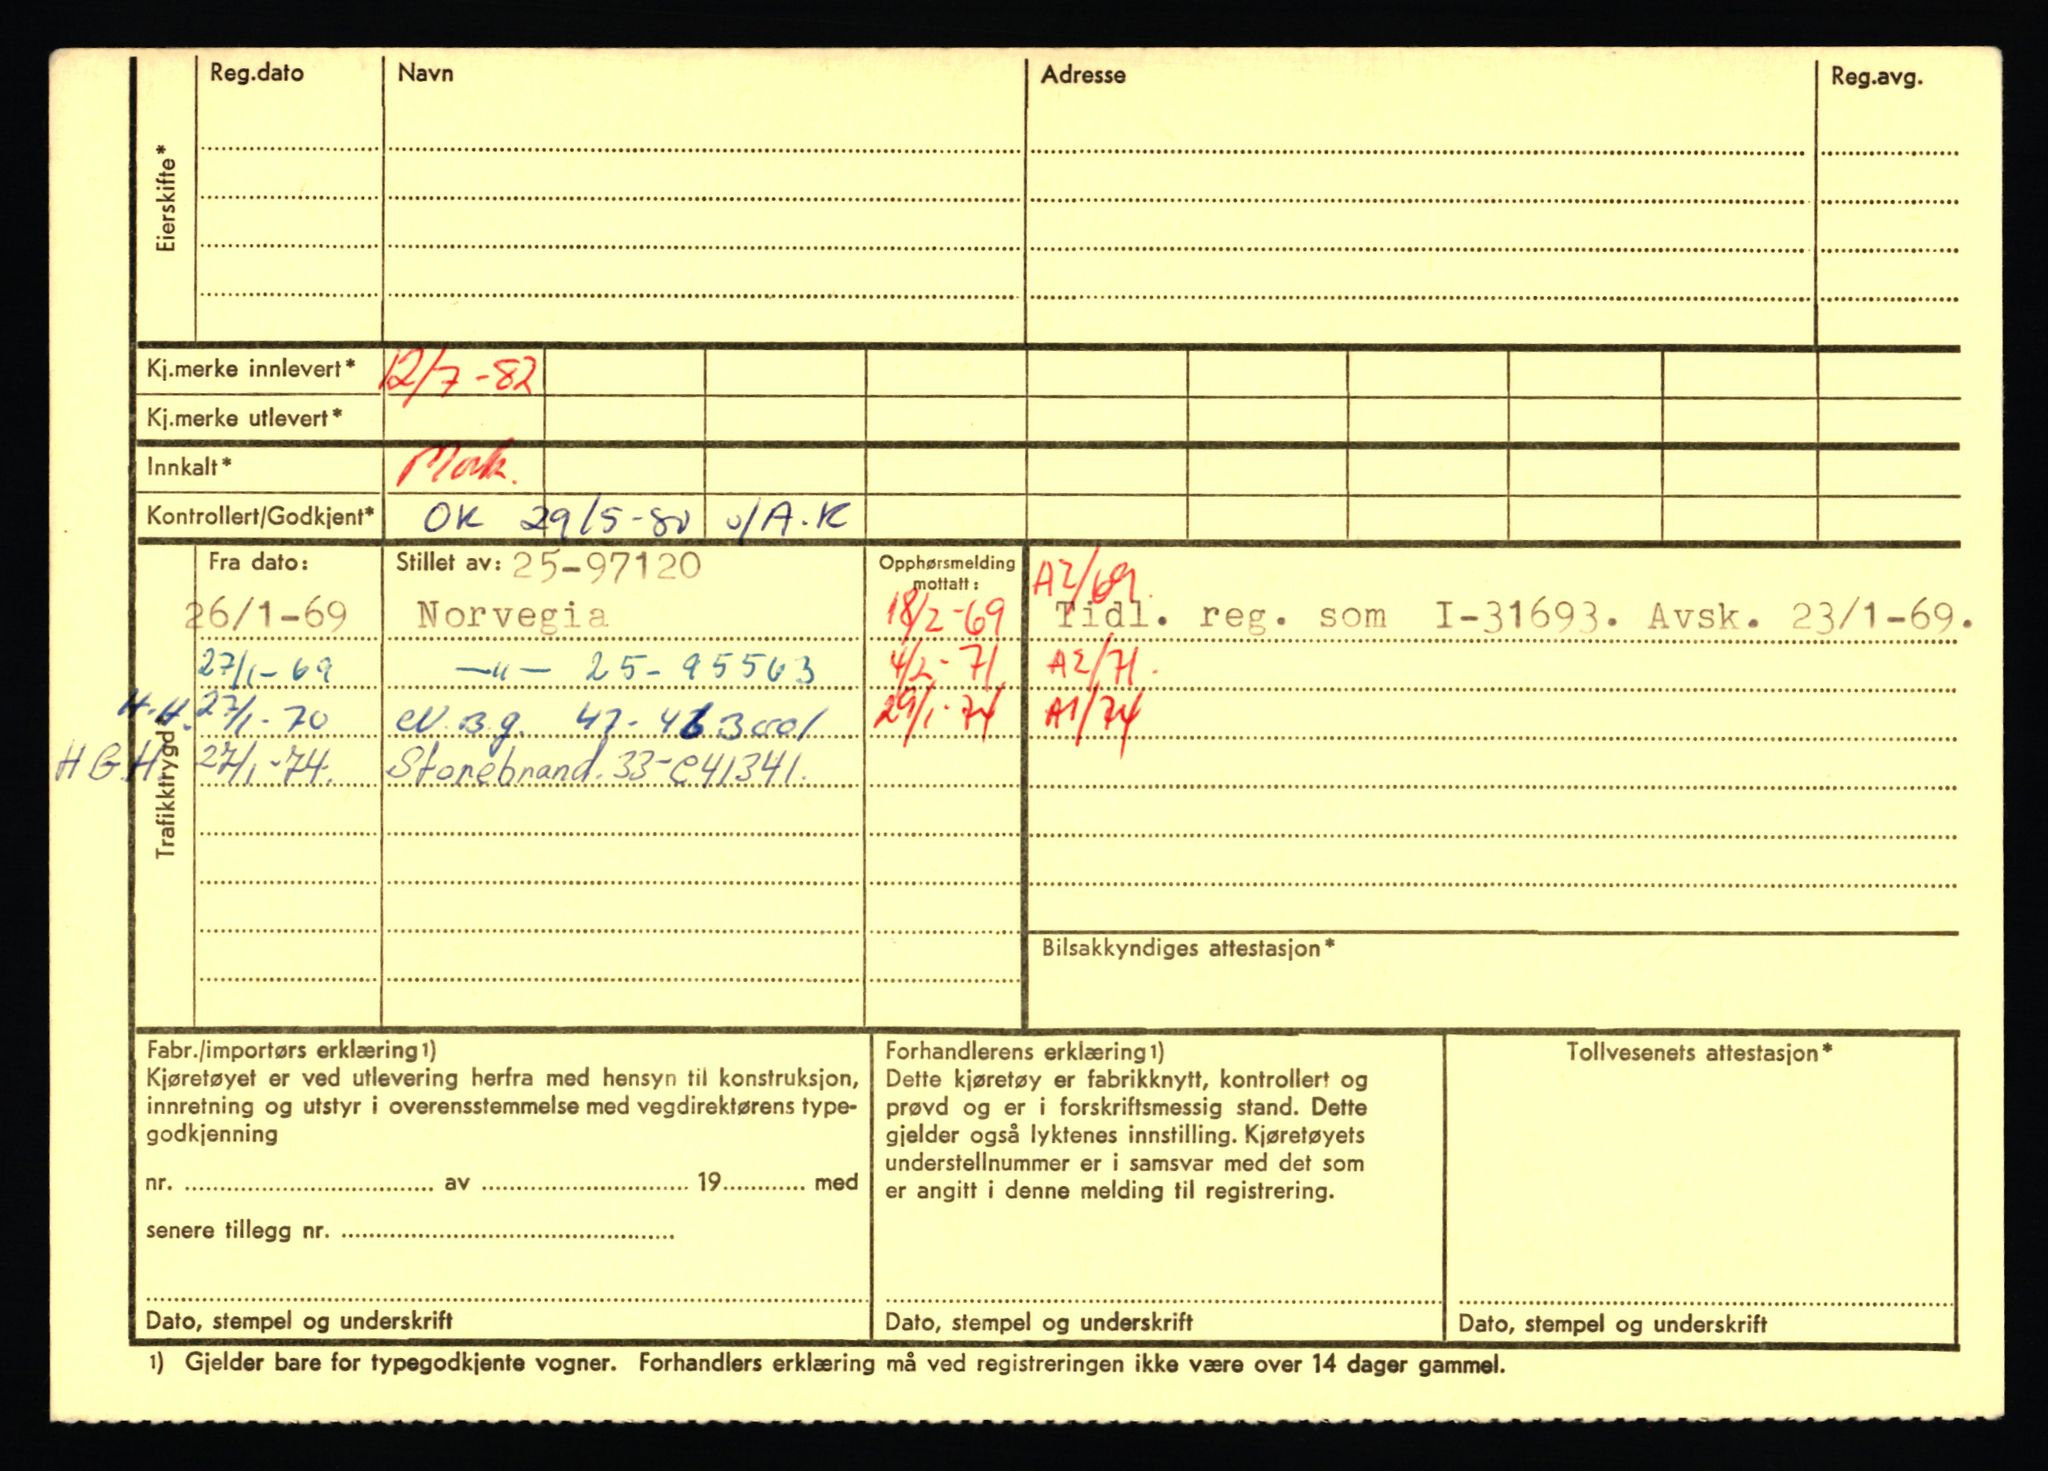 Reg.dato Navn Adresse Reg.avg.
Eierskifte*
Kj.merke innlevert* 12/7-82
Kj.merke utlevert*
Innkalt*
Kontrollert/Godkjent* OK 29/5-80 v/A.K
Trafikktrygd
Fra dato: Stillet av: 25-97120 Opphørsmelding mottatt: A2/69.
26/1-69 Norvegia 18/2-69 Tidl. reg. som I-31693. Avsk. 23/1-69.
27/1-69 —"— 25-95563 4/2-71 A2/71.
H.H. 27/1-70 29/1-74 A1/74
H G.H. 27/1-74. Storebrand. 33-C41341.
Bilsakkyndiges attestasjon*
Fabr./importørs erklæring1)
Kjøretøyet er ved utlevering herfra med hensyn til konstruksjon,
innretning og utstyr i overensstemmelse med vegdirektørens type-
godkjenning
nr. .......... av .......... 19.......... med
senere tillegg nr. ..........
Dato, stempel og underskrift
Forhandlerens erklæring1)
Dette kjøretøy er fabrikknytt, kontrollert og
prøvd og er i forskriftsmessig stand. Dette
gjelder også lyktenes innstilling. Kjøretøyets
understellnummer er i samsvar med det som
er angitt i denne melding til registrering.
Dato, stempel og underskrift
Tollvesenets attestasjon*
Dato, stempel og underskrift
1) Gjelder bare for typegodkjente vogner. Forhandlers erklæring må ved registreringen ikke være over 14 dager gammel.